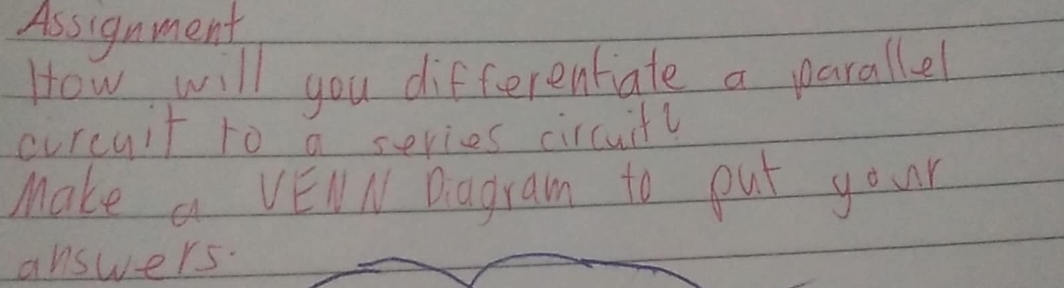 Assignment
How will you differentiate a parallel
circuit to a series circuit?
Make a VENN Diagram to put your
answers.